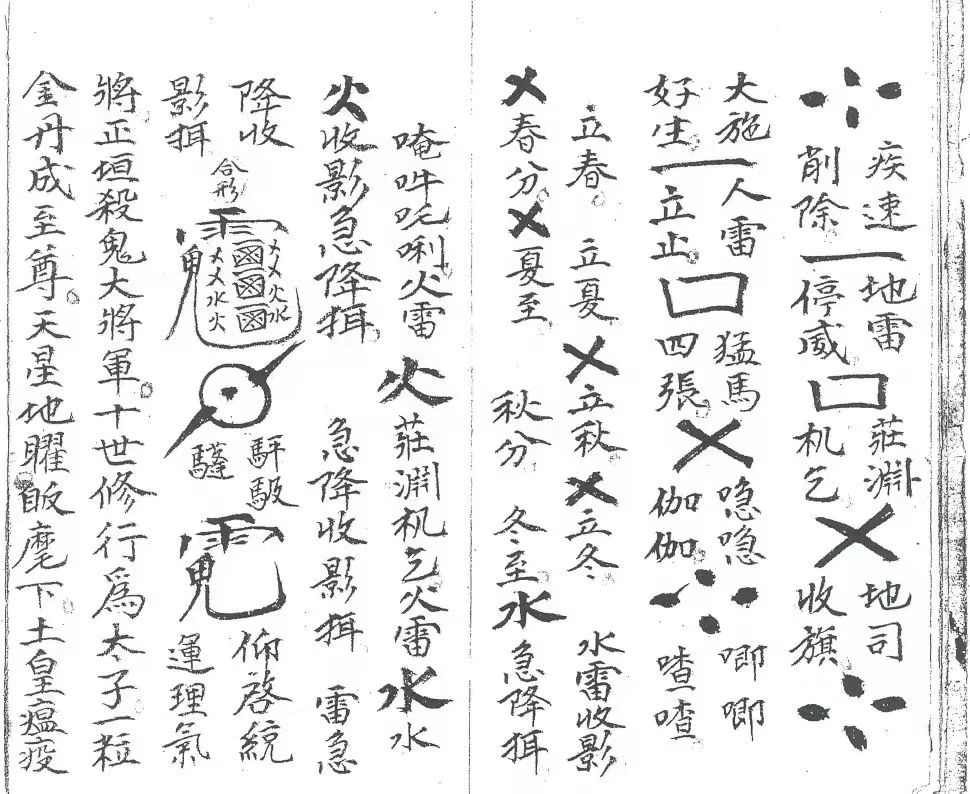 疾速 地雷 莊淵 地司
削除 停威 机乞 收旗
大施 人雷 猛馬 隐隐 唧唧
好生 立止 四張 伽伽 喳喳
立春 立夏 立秋 立冬 水雷收影
春分 夏至 秋分 冬至 水 急降挕
唵吽吒唎火雷 火 莊淵机乞火雷 水 水
火收影急降挕 急降收影挕 雷急
降收
影挕
合形
仰啓統
運理氣
將正垣殺鬼大將軍十世修行爲太子一粒
金丹成至尊天星地曜皈麾下土皇瘟疫